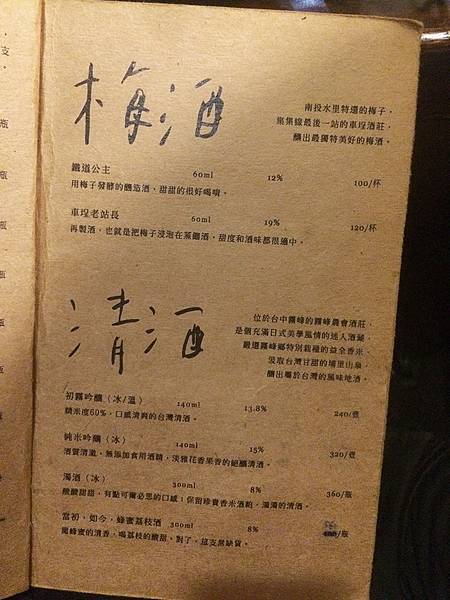 梅酒
南投水里特選的梅子，
集集線最後一站的車埕酒莊，
釀出最獨特美好的梅酒。
鐵道公主 60ml 12% 100/杯
用梅子發酵的釀造酒、甜甜的很好喝唷。
車埕老站長 60ml 19% 120/杯
再製酒，也就是把梅子浸泡在蒸餾酒，甜度和酒味都很適中。
清酒
位於台中霧峰的霧峰農會酒莊，
是個充滿日式美學風情的迷人酒舖，
嚴選霧峰鄉特別栽種的益全香米，
汲取台灣甘甜的埔里山泉，
釀出屬於台灣的風味地酒。
初霧吟釀（冰/溫） 140ml 13.8% 240/壺
精米度60%，口感清爽的台灣清酒。
純米吟釀（冰） 140ml 15% 320/壺
酒質清澈、無添加食用酒精，淡雅花香果香的絕釀清酒。
濁酒（冰） 300ml 8% 360/瓶
酸酸甜甜，有點可爾必思的口感！保留珍貴香米酒粕，濁濁的清酒。
當初、如今，蜂蜜荔枝酒 300ml 8% /瓶
聞蜂蜜的清香，喝荔枝的酸甜，對了，這支常缺貨。
支
瓶
瓶
瓶
瓶
瓶
瓶
瓶